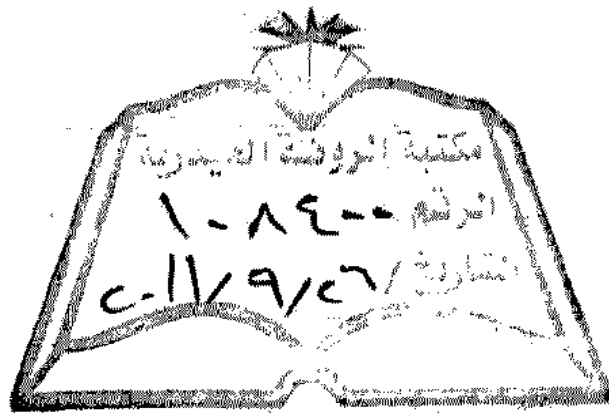 مكتبة الروضة الحيدرية
الرقم ١٠٨٤٠٠
التاريخ ٢٠١١/٩/٢٦